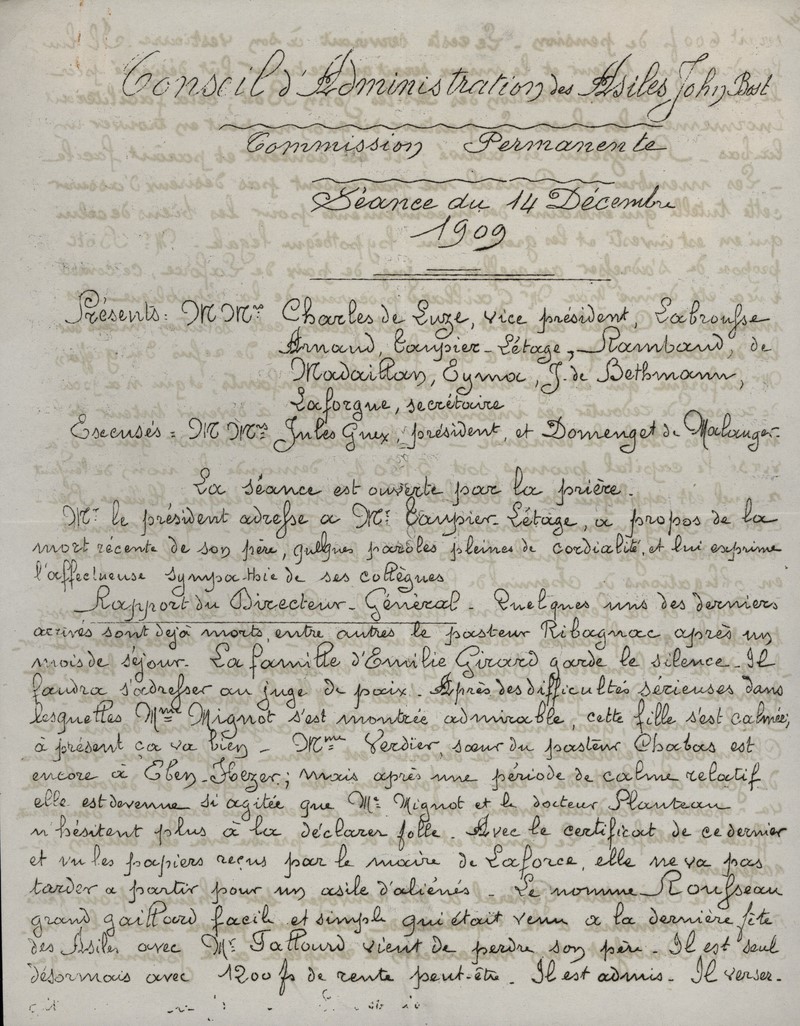 Conseil d'Administration des Asiles John Bost
Commission Permanente
Séance du 14 Décembre
1909
Présents : M Mrs Charles de Luze, vice président, Labrousse
Armand, Caupier-Létage, Rambaud, de
Madaillan, Eyma, J. de Bethmann,
Laforgue, secrétaire
Excusés : M Mrs Jules Guex, président, et Domenget de Malauger.
La séance est ouverte par la prière.
Mr. le président adresse a Mr. Caupier-Létage, a propos de la
mort récente de son père, quelques paroles pleines de cordialité, et lui exprime
l'affectueuse sympathie de ses collègues
Rapport du Directeur-Général - Quelques uns des derniers
arrivés sont dejà morts, entre autres le pasteur Ribagnac après un
mois de séjour. La famille d'Emilie Girard garde le silence. Il
faudra s'adresser au juge de paix. Après des difficultés sérieuses dans
lesquelles Mme Mignot s'est montrée admirable, cette fille s'est calmée,
à présent ça va bien - Mme Verdier, sœur du pasteur Chabas est
encore à Eben-Hezer ; mais après une période de calme relatif
elle est devenue si agitée que Mr Mignot et le docteur Planteau
n'hésitent plus à la déclarer folle. Avec le certificat de ce dernier
et vu les papiers reçus par le maire de Laforce, elle ne va pas
tarder a partir pour un asile d'aliénés - Le nommé Rousseau
grand gaillard facile et simple qui était venu a la dernière fête
des Asiles avec Mr Tallourd vient de perdre son père. Il est seul
désormais avec 1200 f de rente peut-être. Il est admis. Il verse-